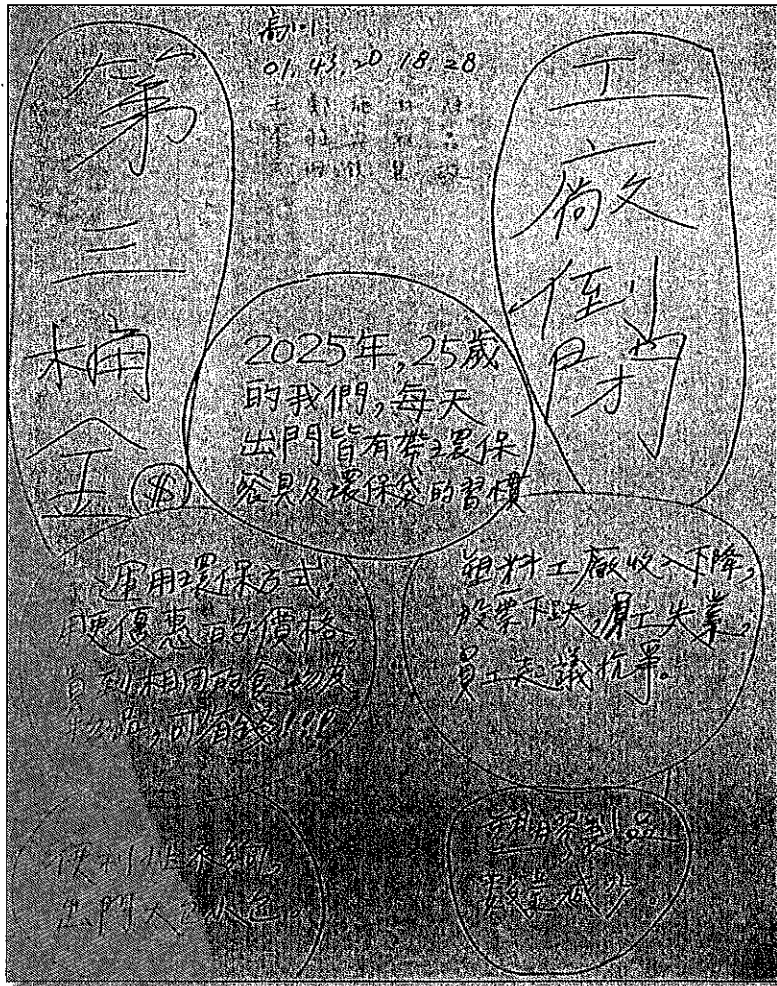 第三桶金
$
01, 43, 20, 18, 28
工廠倒閉
2025年, 25歲
的我們, 每天
出門皆有帶環保
餐具及環保袋的習慣
運用環保方式,
優惠的價格
買到相同的食物及
物品, 可省錢!!!
塑料工廠收入下降,
股票下跌, 員工失業,
員工走議抗爭。
便利性不夠,
出門大包小包
塑膠製品
數量減少